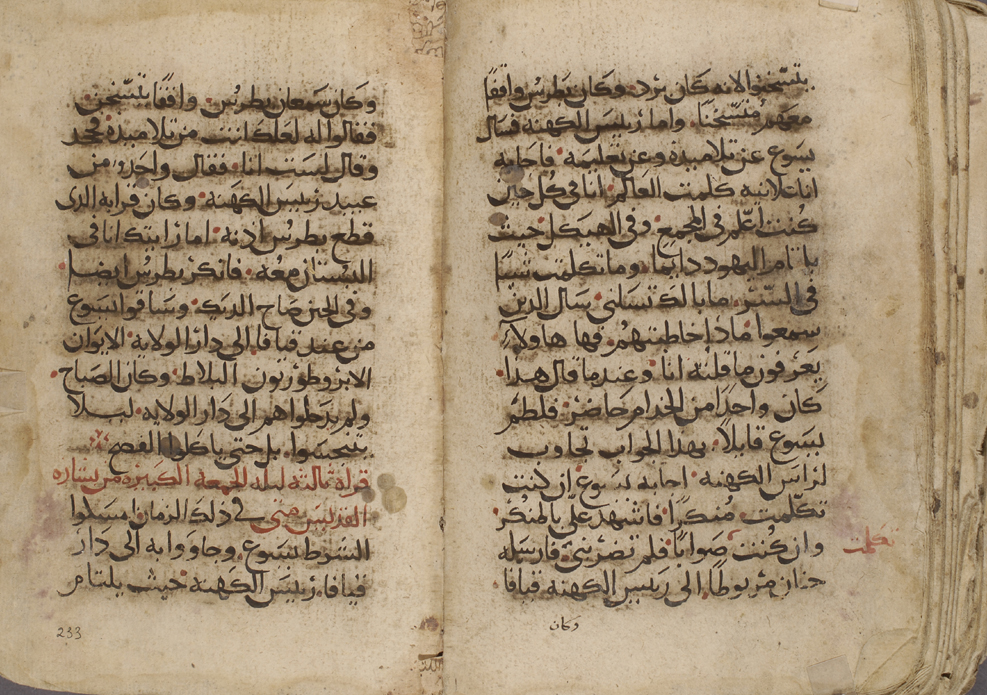 يتسخنوا لانه كان برد وكان بطرس واقفا
معهم متسخنا واما رييس الكهنه فسال
يسوع عن تلاميده وعن تعليمه فاجابه
انا علانيه كلمت العالم انا في كل حين
كنت اعلم في المجمع وفي الهيكل حيث
ياتام اليهود دايما وما تكلمت شيا
في الستر ما بالك تسلني سال الدين
سمعوا مادا خاطبتهم فها هاولاء
يعرفون ما قلته انا وعندما قال هدا
كان واحدا من الخدام حاضر فلطم
يسوع قايلا بهدا الجواب تجاوب
لراس الكهنه اجابه يسوع ان كنت
تكلمت منكرا فاشهد علي بالمنكر
تكلمت
وان كنت صوابا فلم تضربني فارسله
حنان مربوطا الى رييس الكهنه قيافا
وكان
وكان سمعان بطرس واقفا يتسخن
فقالوا له لعلك انت من تلاميده فجحد
وقال لست انا فقال واحد من
عبيد رييس الكهنه وكان قرابه الدى
قطع بطرس ادنه اما رايتك انا في
البستان معه فانكر بطرس ايضا
وفي الحين صاح الديك وساقوا يسوع
من عند قيافا الى دار الولايه الايوان
الابروطوريون البلاط وكان الصباح
ولم يدخلوا هم الى دار الولايه ليلا
يتنجسوا بل حتى ياكلوا الفصح
قراة تالتة ليلة الجمعة الكبيرة من بشاره
القديس متى في دلك الزمان مسكوا
الشرط يسوع وجاووا به الى دار
قيافا رييس الكهنه حيث يلتام
233